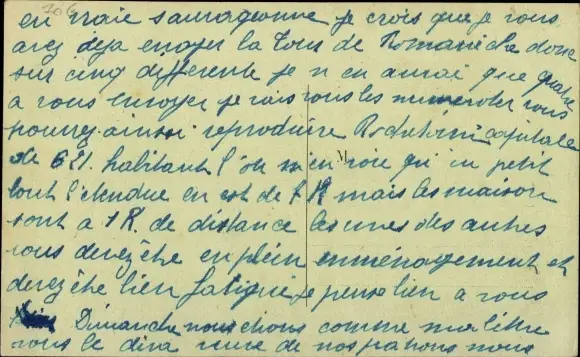 306
en vraie sauvageonne je crois que je vous
avez deja envoyer la Tour de Romanèche donc
sur cinq differente je n en aurai que quatre
a vous envoyer je vais vous les numeroter vous
pourrez ainssi reproduire capitale
de 611 habitant l'on n'en voie qu'un petit
bout l'etendue en est de 7 K mais les maison
sont a 1 K. de distance les unes des autres
vous devez être en plein emménagement et
devez être bien fatigué je pense bien a vous
Dimanche nous étions comme ma lettre
vous le dira de nos patrons nous
M